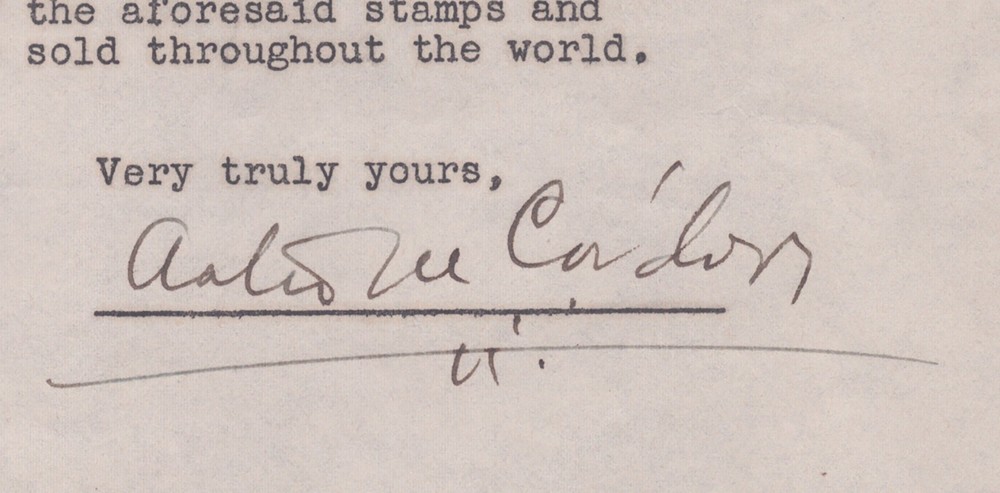 the aforesaid stamps and
sold throughout the world.
Very truly yours,